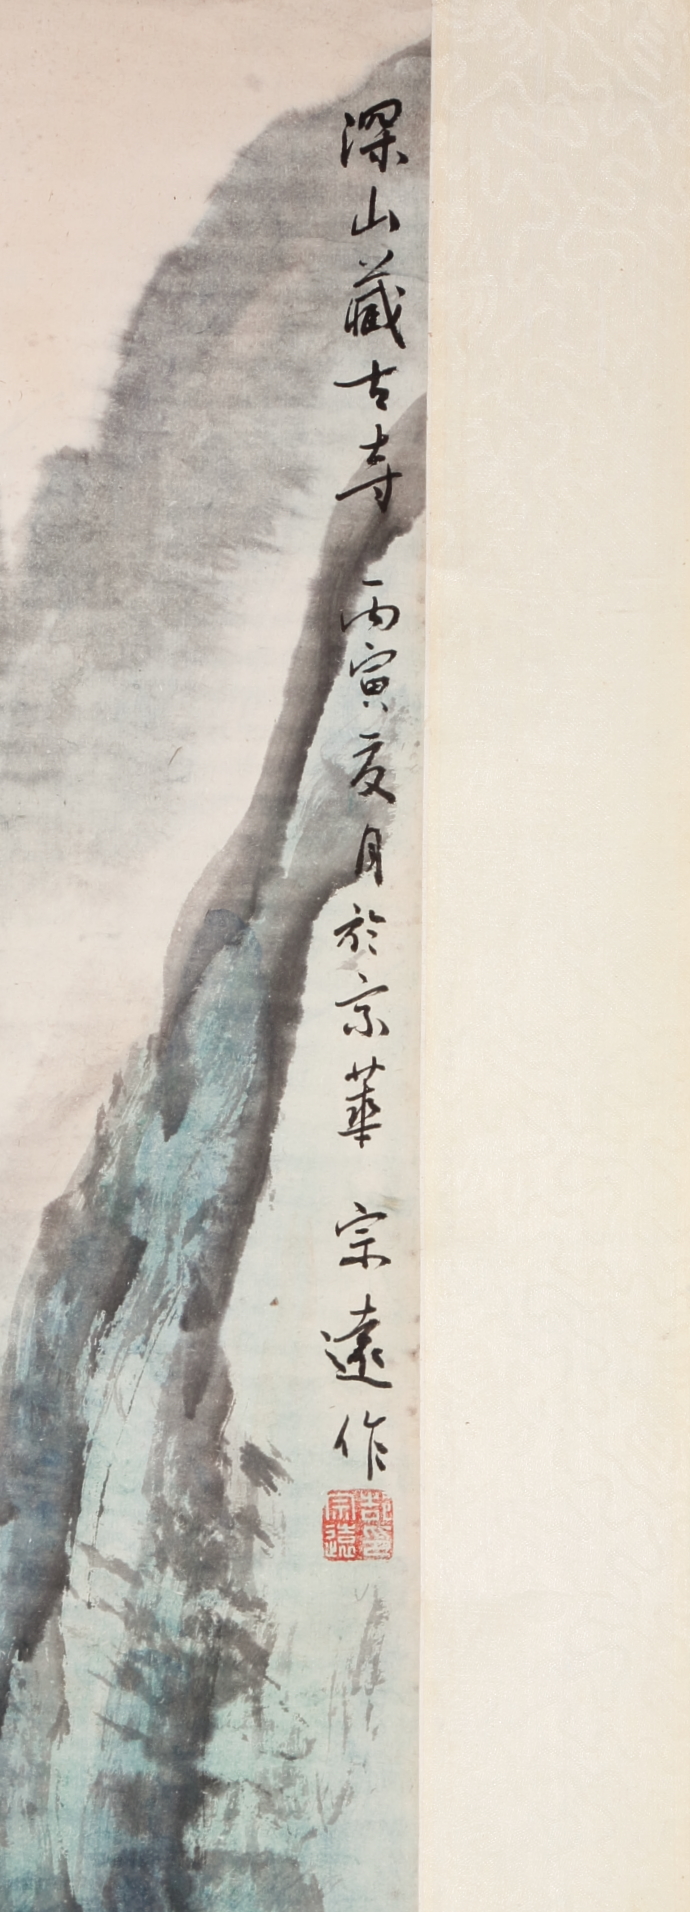 深山藏古寺 丙寅夏月於京華 宗遠作
宗遠